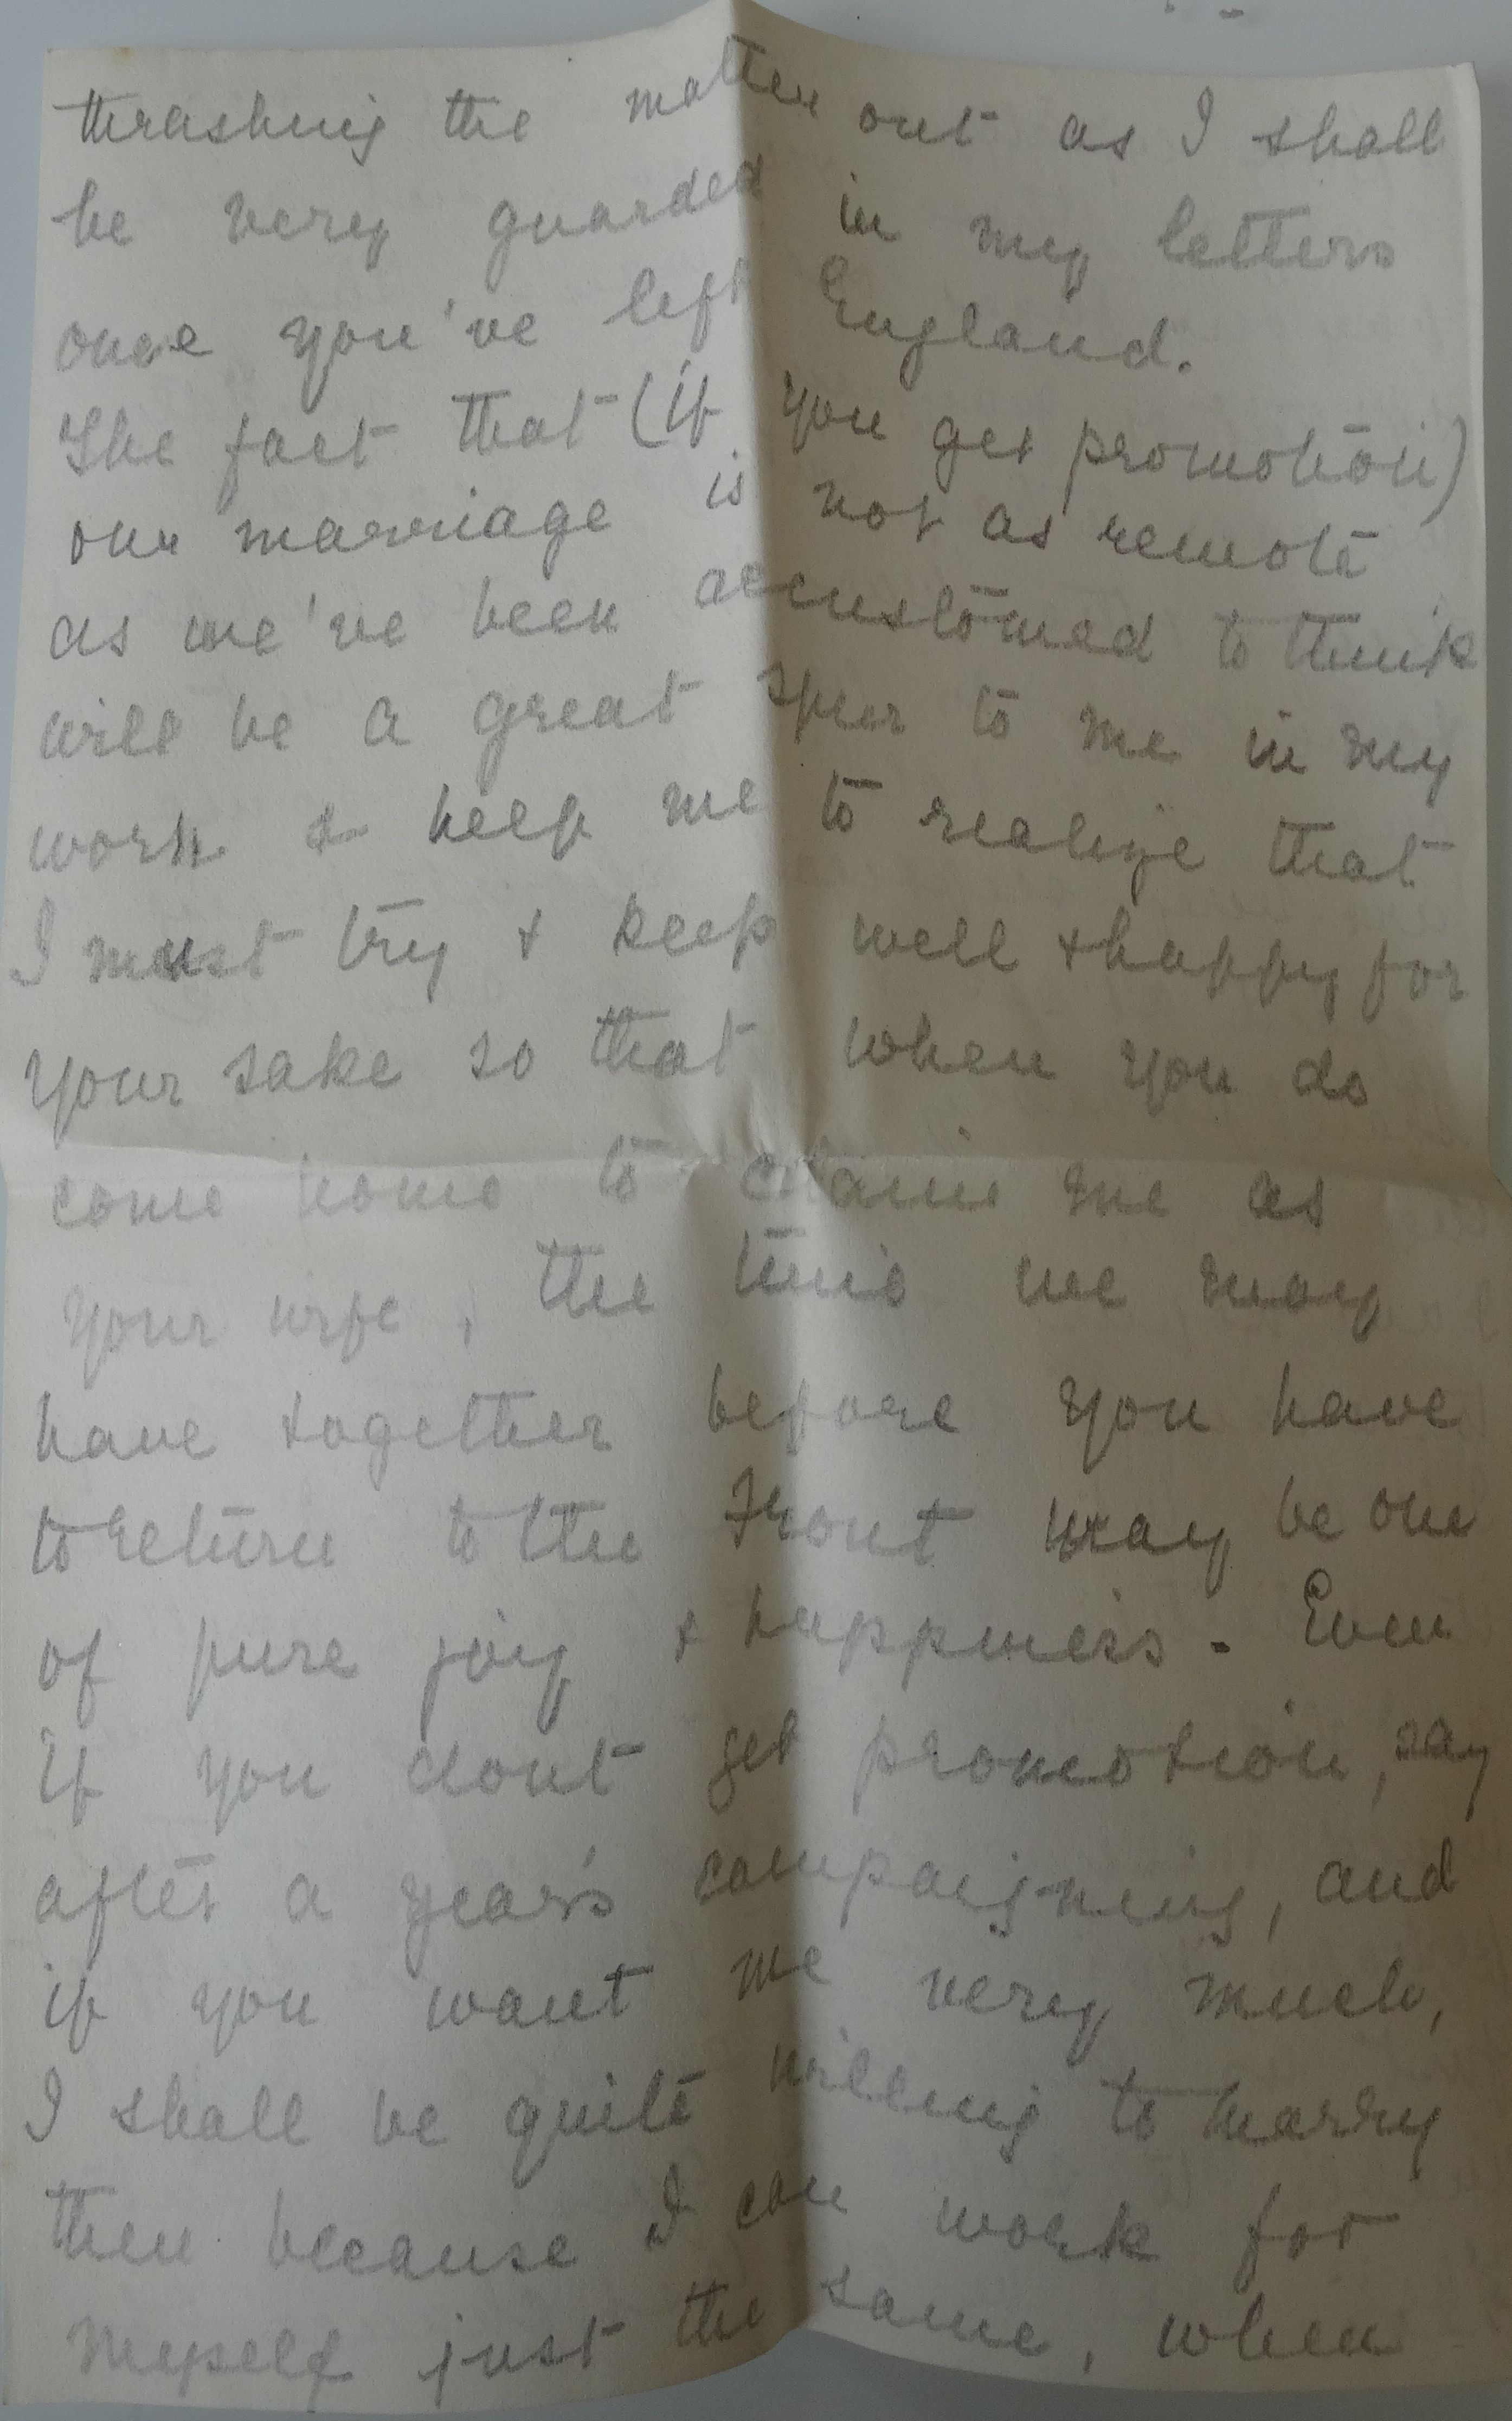 thrashing the matter out as I shall
be very guarded in my letters
once you've left England.
The fact that (if you get promotion)
our marriage is not as remote
as we've been accustomed to think
will be a great spur to me in my
work & help me to realize that
I must try & keep well & happy for
your sake so that when you do
come home to claim me as
your wife, the time we may
have together before you have
to return to the Front may be one
of pure joy & happiness. Even
if you dont get promotion, say
after a year's campaigning, and
if you want me very much,
I shall be quite willing to marry
then because I can work for
myself just the same, when